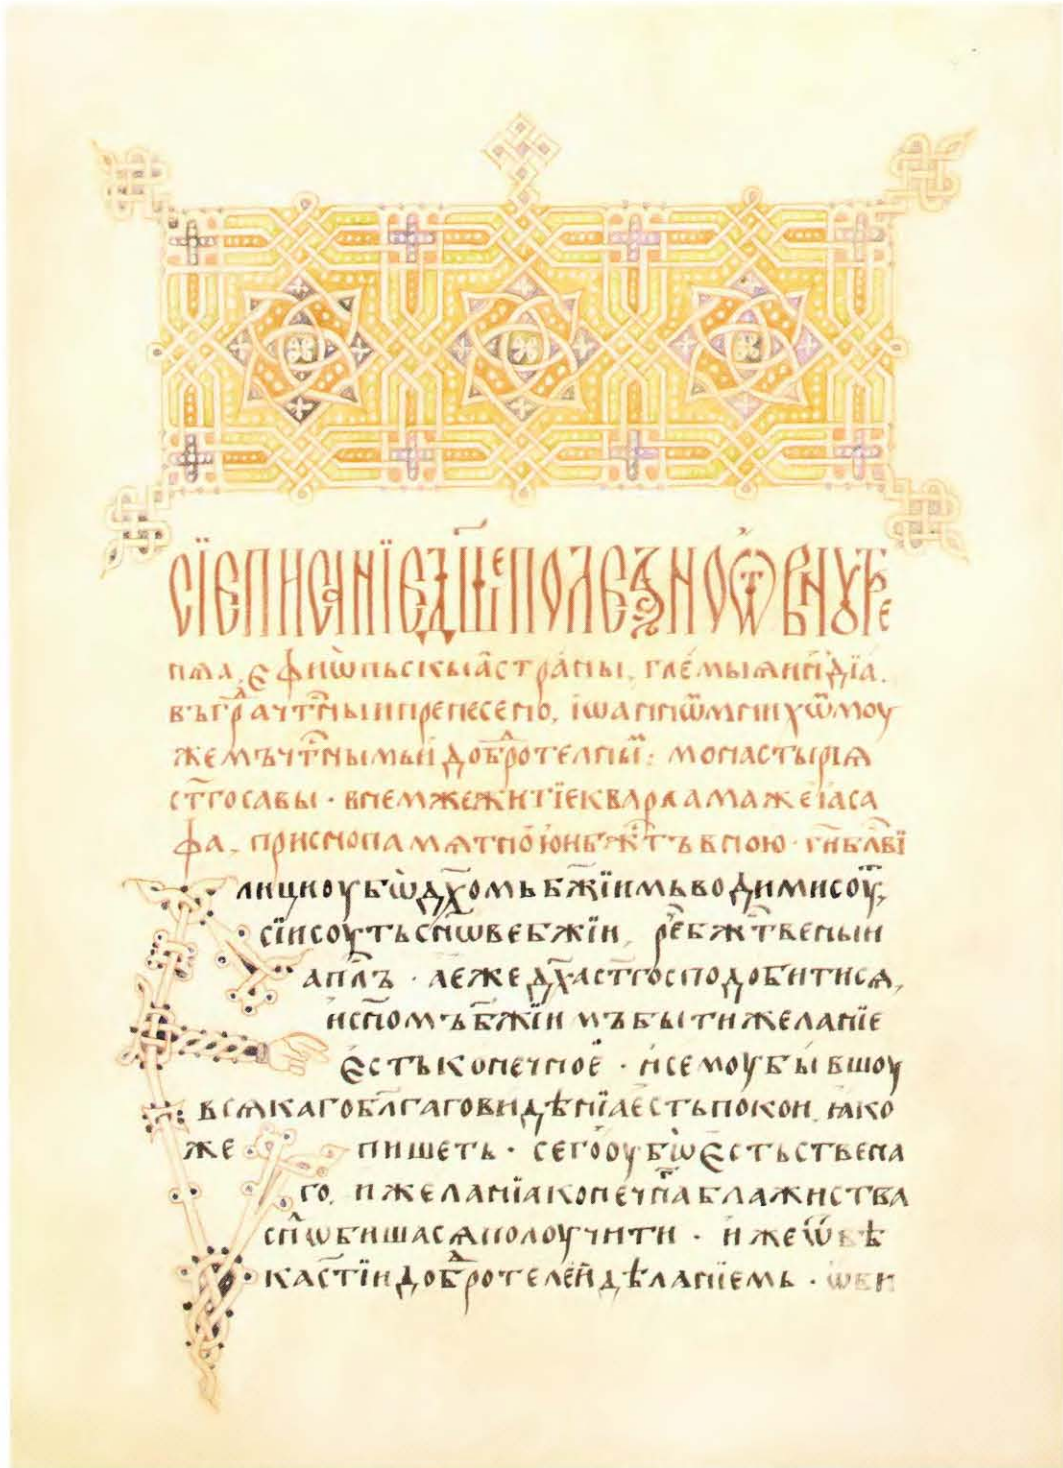 сїе писанїе дш҃еполезно ѿ вноутре
няа, єѳиѡпьскыа страны, гл҃емыя индїа.
въ гра чт҃ныи пренесено, їѡанномъ мнихомъ моу
жемъ чт҃нымь и добродѣтелны: монастырїя
ст҃го савы · в немже житїе к варлама же їаса
фа, приснопамятною
лици оубѡ дх҃омь бж҃їимь водими соу,
сїи соуть сн҃ове бж҃їи, рече бж҃твеныи
апл҃ъ · а еже дх҃а ст҃го сподобитися,
и сн҃омъ бж҃їимъ быти желанїе
єсть конечное · и семоу бывшоу
всякаго бл҃гаго видѣнїа есть покои, ꙗко
же пишеть · сего оубѡ єстьствена
го, и желанїа конечна блаженства
сп҃обишася полоучити · иже ѿ вѣ
ка ст҃їи добротелей дѣланїемь · ѡви